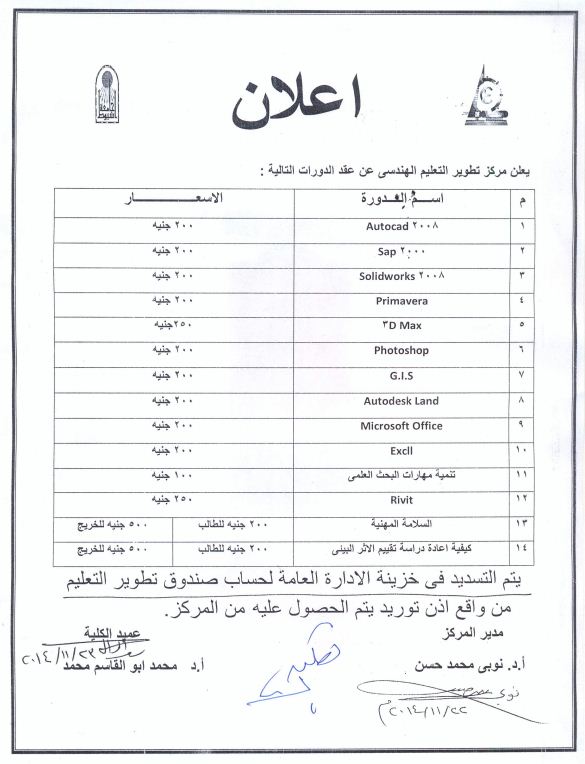 اعلان
يعلن مركز تطوير التعليم الهندسى عن عقد الدورات التالية :
م اسم الدورة الاسعار
١ Autocad ٢٠٠٨ ٢٠٠ جنيه
٢ Sap ٢٠٠٠ ٢٠٠ جنيه
٣ Solidworks ٢٠٠٨ ٢٠٠ جنيه
٤ Primavera ٢٠٠ جنيه
٥ ٣D Max ٢٥٠جنيه
٦ Photoshop ٢٠٠ جنيه
٧ G.I.S ٢٠٠ جنيه
٨ Autodesk Land ٢٠٠ جنيه
٩ Microsoft Office ٢٠٠ جنيه
١٠ Excll ٢٠٠ جنيه
١١ تنمية مهارات البحث العلمى ١٠٠ جنيه
١٢ Rivit ٢٥٠ جنيه
١٣ السلامة المهنية ٢٠٠ جنيه للطالب ٥٠٠ جنيه للخريج
١٤ كيفية اعادة دراسة تقييم الاثر البيئى ٢٠٠ جنيه للطالب ٥٠٠ جنيه للخريج
يتم التسديد فى خزينة الادارة العامة لحساب صندوق تطوير التعليم
من واقع اذن توريد يتم الحصول عليه من المركز.
مدير المركز عميد الكلية
٢٠١٤/١١/٢٣
أ.د. نوبى محمد حسن أ.د محمد ابو القاسم محمد
نوبى
٢٠١٤/١١/٢٢